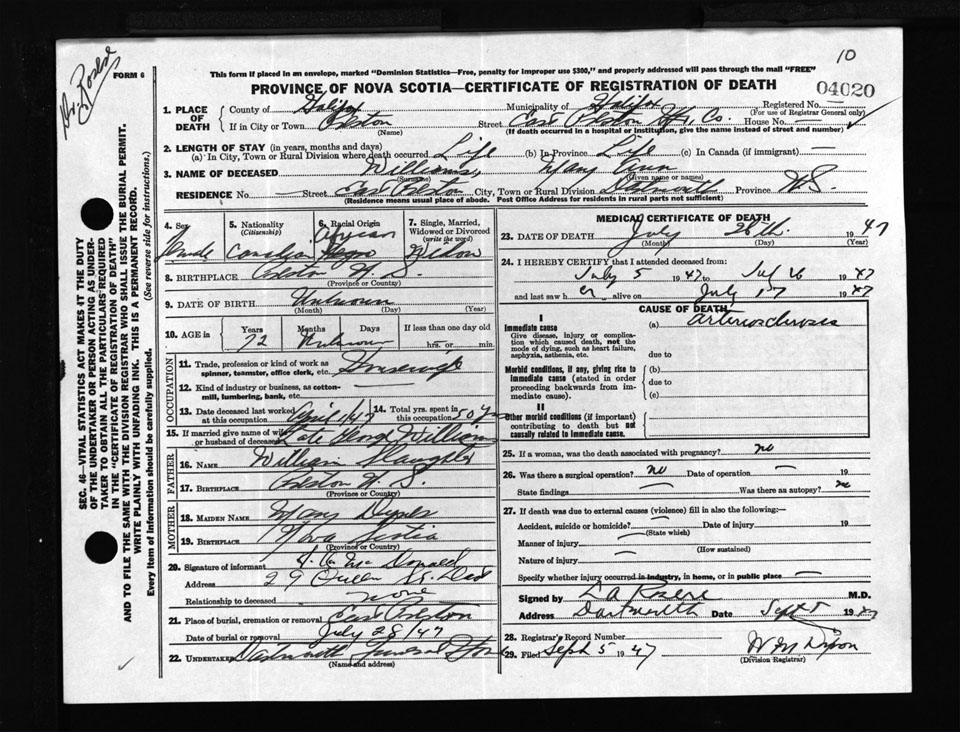 10
Dr. Rosere
FORM 6
This form if placed in an envelope, marked "Dominion Statistics—Free, penalty for improper use $300," and properly addressed will pass through the mail "FREE"
PROVINCE OF NOVA SCOTIA—CERTIFICATE OF REGISTRATION OF DEATH
04020
1. PLACE OF DEATH County of Halifax Municipality of Halifax Registered No.
(For use of Registrar General only)
If in City or Town Preston Street East Preston Hfx Co. House No. —
(Name) (If death occurred in a hospital or institution, give the name instead of street and number)
2. LENGTH OF STAY (in years, months and days)
(a) In City, Town or Rural Division where death occurred Life (b) In Province Life (c) In Canada (if immigrant) —
3. NAME OF DECEASED Williams, Mary Ann
(Surname) (Given name or names)
RESIDENCE No. — Street East Preston City, Town or Rural Division Dartmouth Province N.S.
(Residence means usual place of abode. Post Office Address for residents in rural parts not sufficient)
4. Sex Female
5. Nationality (Citizenship) Canadian
6. Racial Origin African Negro
7. Single, Married, Widowed or Divorced (write the word) Widow
8. BIRTHPLACE Preston N.S.
(Province or Country)
9. DATE OF BIRTH Unknown
(Month) (Day) (Year)
10. AGE in Years Months Days If less than one day old
72 Unknown hrs. or min.
OCCUPATION
11. Trade, profession or kind of work as spinner, teamster, office clerk, etc. Housewife
12. Kind of industry or business, as cotton-mill, lumbering, bank, etc. —
13. Date deceased last worked at this occupation April 1947
14. Total yrs. spent in this occupation 50 yrs
15. If married give name of wife or husband of deceased Late Williams
FATHER
16. NAME William Slaughter
17. BIRTHPLACE Preston N.S.
(Province or Country)
MOTHER
18. MAIDEN NAME Mary
19. BIRTHPLACE Nova Scotia
(Province or Country)
20. Signature of informant McDonald
Address 29 Queen St.
Relationship to deceased none
21. Place of burial, cremation or removal East Preston
Date of burial or removal July 28/47
22. UNDERTAKER Dartmouth Funeral Home
(Name and address)
MEDICAL CERTIFICATE OF DEATH
23. DATE OF DEATH July 26th. 1947
(Month) (Day) (Year)
24. I HEREBY CERTIFY that I attended deceased from:
July 5 1947 to Jul 26 1947
and last saw her alive on July 17 1947
CAUSE OF DEATH
I
Immediate cause (a) arteriosclerosis
Give disease, injury or complication which caused death, not the mode of dying, such as heart failure, asphyxia, asthenia, etc.
due to
Morbid conditions, if any, giving rise to immediate cause (stated in order proceeding backwards from immediate cause).
(b)
due to
(c)
II
Other morbid conditions (if important) contributing to death but not causally related to immediate cause.
25. If a woman, was the death associated with pregnancy? no
26. Was there a surgical operation? no Date of operation — 19
State findings — Was there an autopsy? no
27. If death was due to external causes (violence) fill in also the following:—
Accident, suicide or homicide? — Date of injury 19
(State which)
Manner of injury —
(How sustained)
Nature of injury —
Specify whether injury occurred in industry, in home, or in public place —
Signed by M.D.
Address Dartmouth Date Sept 5 1947
28. Registrar's Record Number
29. Filed Sept 5 1947
(Division Registrar)
SEC. 46—VITAL STATISTICS ACT MAKES IT THE DUTY
OF THE UNDERTAKER OR PERSON ACTING AS UNDER-
TAKER TO OBTAIN ALL THE PARTICULARS REQUIRED
IN THE "CERTIFICATE OF REGISTRATION OF DEATH"
AND TO FILE THE SAME WITH THE DIVISION REGISTRAR WHO SHALL ISSUE THE BURIAL PERMIT.
WRITE PLAINLY WITH UNFADING INK. THIS IS A PERMANENT RECORD.
Every item of information should be carefully supplied. (See reverse side for instructions.)